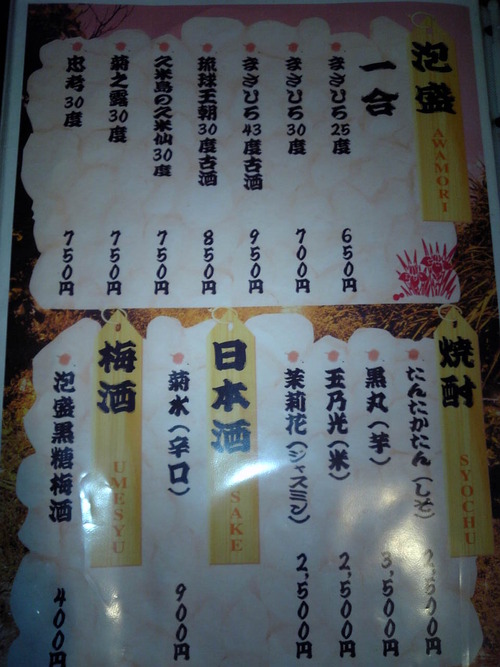 泡盛
AWAMORI
一合
まさひろ25度 650円
まさひろ30度 700円
まさひろ43度古酒 950円
琉球王朝30度古酒 850円
久米島の久米仙30度 750円
菊之露30度 750円
忠孝30度 750円
焼酎
SYOCHU
たんたかたん(しそ) 2,500円
黒丸(芋) 3,500円
玉乃光(米) 2,500円
茉莉花(ジャスミン) 2,500円
日本酒
SAKE
菊水(辛口) 900円
梅酒
UMESYU
泡盛黒糖梅酒 400円